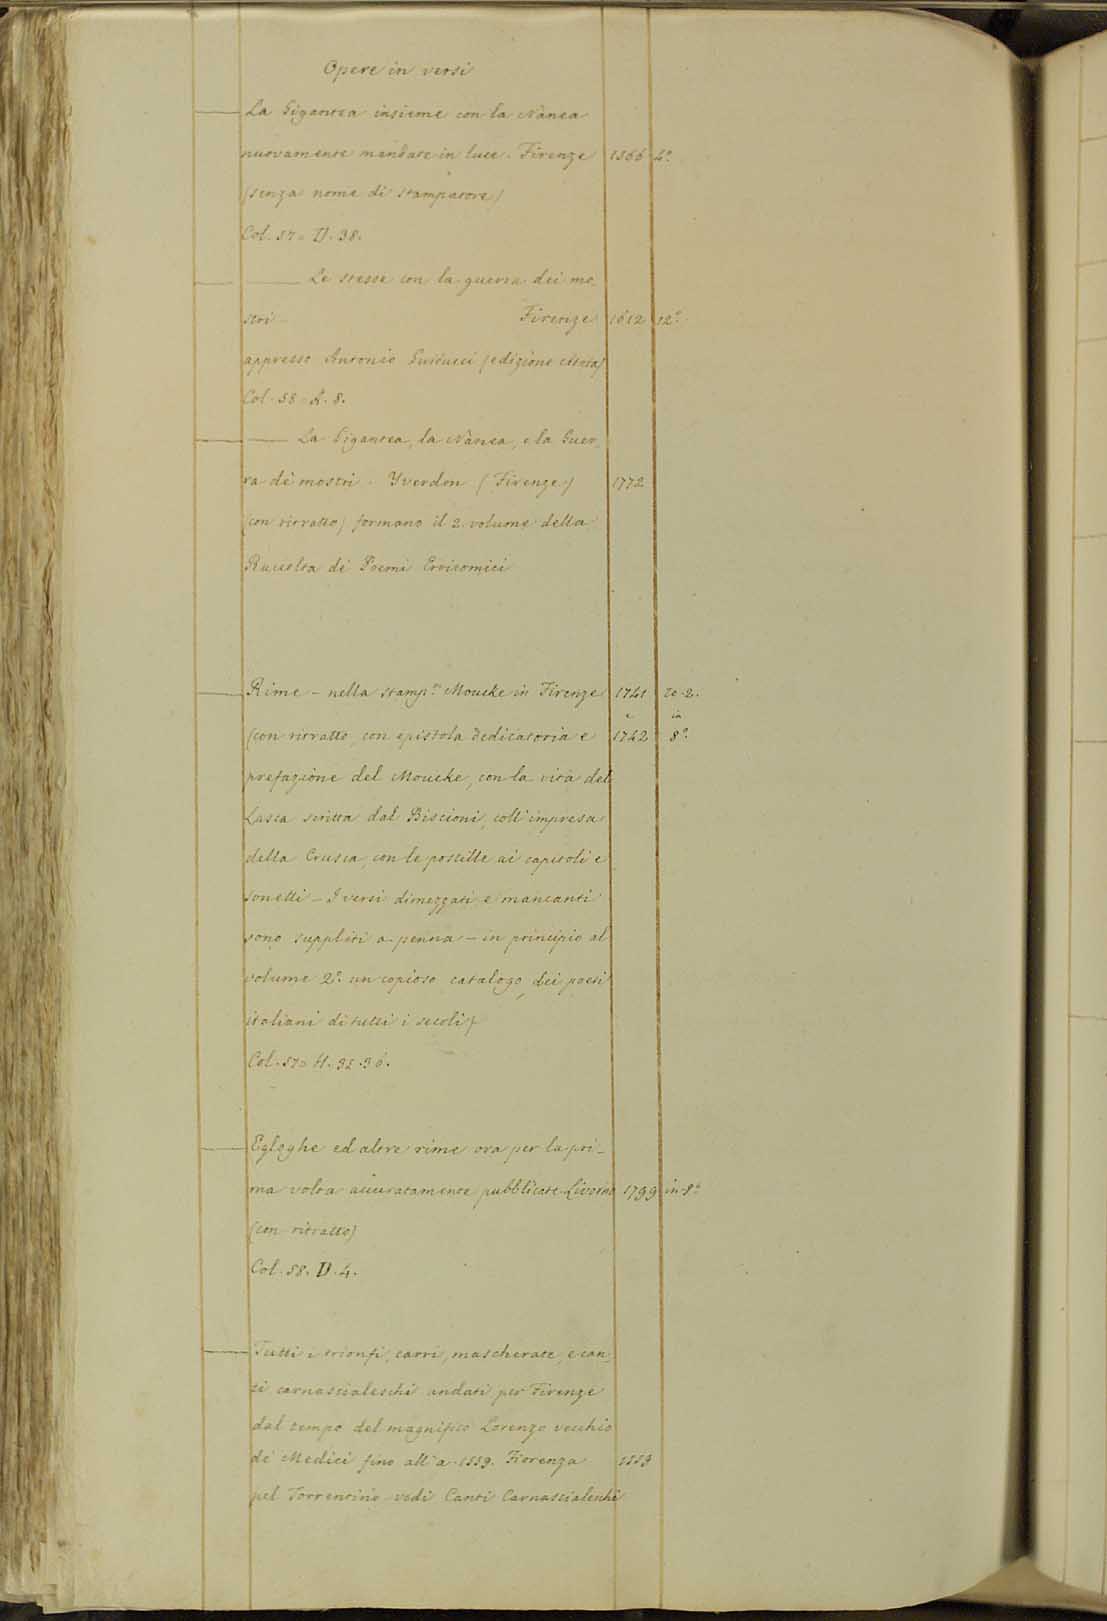 Opere in versi
La Gigantea insieme con la Nanea
nuovamente mandate in luce. Firenze 1566 4°.
(senza nome di stampatore)
Col. 57. D. 38.
—— Le stesse con la guerra dei mo-
stri Firenze 1612 12°.
appresso Antonio Guiducci (edizione citata)
Col. 58. A. 8.
—— La Gigantea, la Nanea, e la Guer-
ra de' mostri. Yverdon (Firenze) 1772
(con ritratto) formano il 2. volume della
Raccolta di Poemi Eroicomici
Rime – nella stamp.ª Moucke in Firenze 1741 to. 2.
e in
(con ritratto, con epistola dedicatoria e 1742 8°.
prefazione del Moucke, con la vita del
Lasca scritta dal Biscioni, coll'impresa
della Crusca, con le postille ai capitoli e
sonetti – I versi dimezzati e mancanti
sono suppliti a penna – in principio al
volume 2°. un copioso catalogo dei poeti
italiani di tutti i secoli)
Col. 57. H. 35. 36.
Egloghe ed altre rime ora per la pri-
ma volta accuratamente pubblicate. Livorno 1799 in 8°
(con ritratto)
Col. 58. D. 4.
Tutti i trionfi, carri, mascherate, e can-
ti carnascialeschi andati per Firenze
dal tempo del magnifico Lorenzo vecchio
de' Medici fino all'a. 1559. Fiorenza 1559
pel Torrentino vedi Canti Carnascialeschi